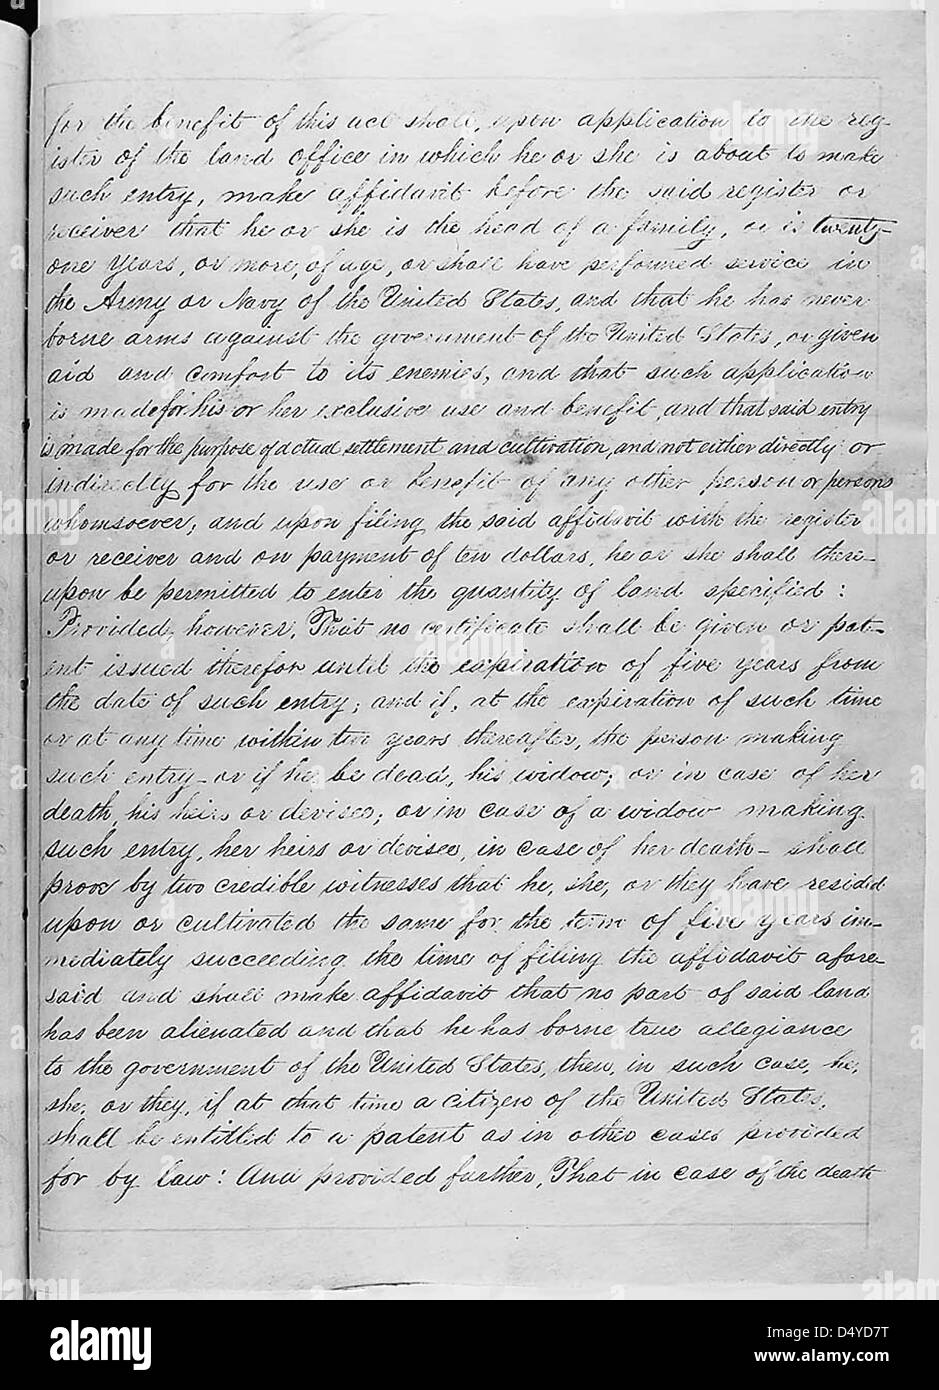 for the benefit of this act shall, upon application to the reg-
ister of the land office in which he or she is about to make
such entry, make affidavit before the said register or
receiver that he or she is the head of a family, or is twenty-
one years, or more, of age, or shall have performed service in
the Army or Navy of the United States, and that he has never
borne arms against the government of the United States, or given
aid and comfort to its enemies, and that such application
is made for his or her exclusive use and benefit, and that said entry
is made for the purpose of actual settlement and cultivation, and not either directly or
indirectly for the use or benefit of any other person or persons
whomsoever; and upon filing the said affidavit with the register
or receiver and on payment of ten dollars, he or she shall there-
upon be permitted to enter the quantity of land specified:
Provided, however, That no certificate shall be given or pat-
ent issued therefor until the expiration of five years from
the date of such entry; and if, at the expiration of such time
or at any time within two years thereafter, the person making
such entry - or if he be dead, his widow; or in case of her
death, his heirs or devisee; or in case of a widow making
such entry, her heirs or devisee, in case of her death - shall
prove by two credible witnesses that he, she, or they have resided
upon or cultivated the same for the term of five years im-
mediately succeeding the time of filing the affidavit afore-
said and shall make affidavit that no part of said land
has been alienated and that he has borne true allegiance
to the government of the United States, then, in such case, he,
she, or they, if at that time a citizen of the United States,
shall be entitled to a patent as in other cases provided
for by law: And provided further, That in case of the death
alamy
Image ID: D4YD7T
www.alamy.com